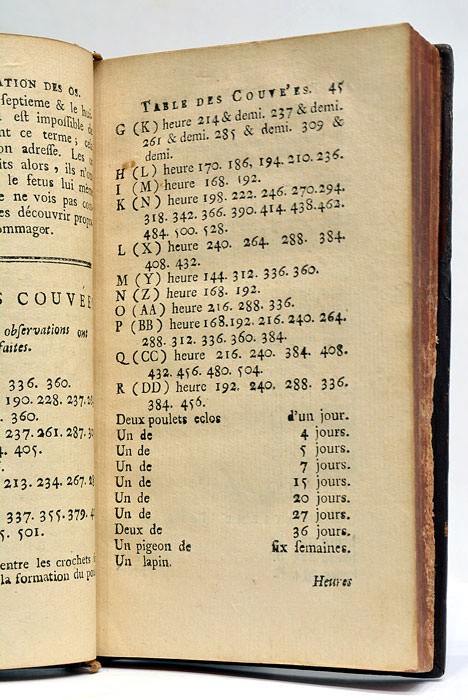 ATION DES OS.
septieme & le hui
est impossible de
nt ce terme; cel
on adresse. Les
its alors, ils n'
le fetus lui mê
e ne vois pas
es découvrir propr
ommager.
S COUVÉE
observations ont
faites.
336. 360.
190. 228. 237.
. 360.
237. 261. 287.
. 405.
213. 234. 267.
337. 355. 379. 4
5. 501.
entre les crochets
la formation du pou
TABLE DES COUVÉES. 45
G (K) heure 214 & demi. 237 & demi.
261 & demi. 285 & demi. 309 &
demi.
H (L) heure 170. 186. 194. 210. 236.
I (M) heure 168. 192.
K (N) heure 198. 222. 246. 270. 294.
318. 342. 366. 390. 414. 438. 462.
484. 500. 528.
L (X) heure 240. 264. 288. 384.
408. 432.
M (Y) heure 144. 312. 336. 360.
N (Z) heure 168. 192.
O (AA) heure 216. 288. 336.
P (BB) heure 168. 192. 216. 240. 264.
288. 312. 336. 360. 384.
Q (CC) heure 216. 240. 384. 408.
432. 456. 480. 504.
R (DD) heure 192. 240. 288. 336.
384. 456.
Deux poulets eclos d'un jour.
Un de 4 jours.
Un de 5 jours.
Un de 7 jours.
Un de 15 jours.
Un de 20 jours.
Un de 27 jours.
Deux de 36 jours.
Un pigeon de six semaines.
Un lapin.
Heures